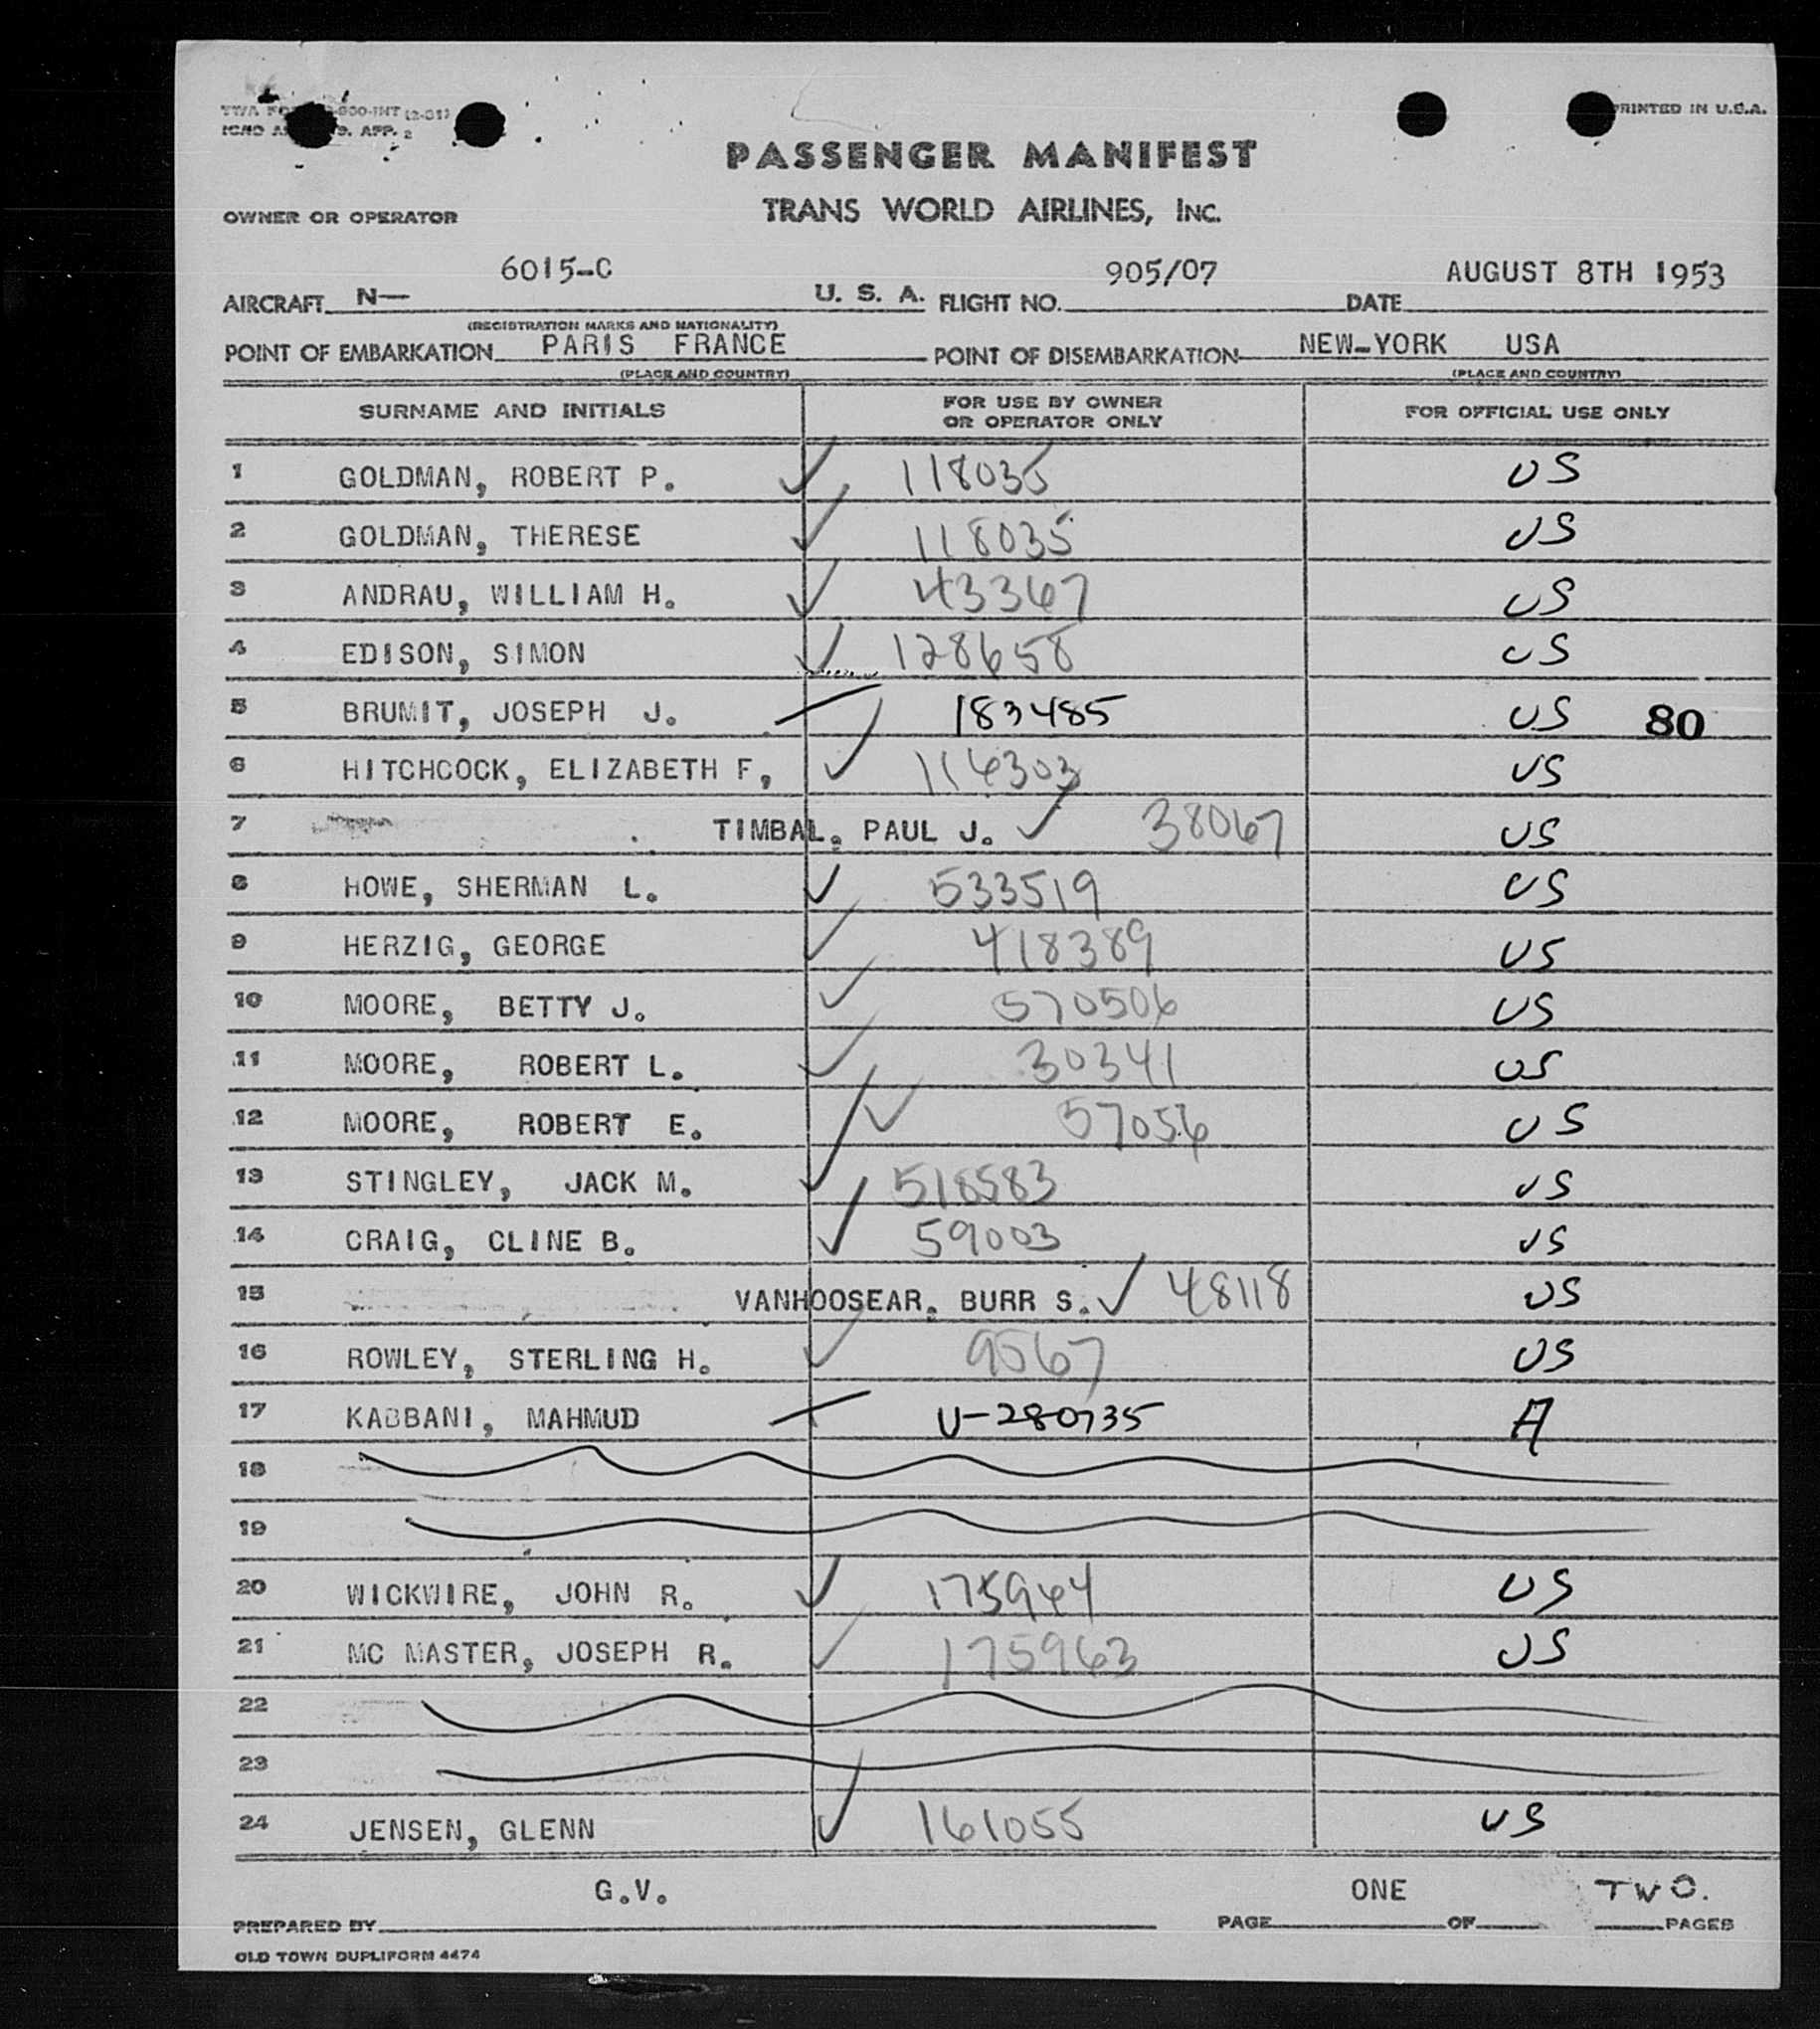 PRINTED IN U.S.A.
PASSENGER MANIFEST
TRANS WORLD AIRLINES, INC.
OWNER OR OPERATOR
6015-C 905/07 AUGUST 8TH 1953
AIRCRAFT N— U. S. A. FLIGHT NO. DATE
(REGISTRATION MARKS AND NATIONALITY)
POINT OF EMBARKATION PARIS FRANCE POINT OF DISEMBARKATION NEW-YORK USA
(PLACE AND COUNTRY) (PLACE AND COUNTRY)
SURNAME AND INITIALS FOR USE BY OWNER OR OPERATOR ONLY FOR OFFICIAL USE ONLY
1 GOLDMAN, ROBERT P. ✓ 118035 US
2 GOLDMAN, THERESE ✓ 118035 US
3 ANDRAU, WILLIAM H. ✓ 43367 US
4 EDISON, SIMON ✓ 128658 US
5 BRUMIT, JOSEPH J. 183485 US 80
6 HITCHCOCK, ELIZABETH F, ✓ 116303 US
7 TIMBAL. PAUL J. ✓ 38067 US
8 HOWE, SHERMAN L. ✓ 533519 US
9 HERZIG, GEORGE ✓ 418389 US
10 MOORE, BETTY J. ✓ 570506 US
11 MOORE, ROBERT L. ✓ 30341 US
12 MOORE, ROBERT E. ✓ 57056 US
13 STINGLEY, JACK M. ✓ 518583 US
14 CRAIG, CLINE B. ✓ 59003 US
15 VANHOOSEAR. BURR S. ✓ 48118 US
16 ROWLEY, STERLING H. ✓ 9567 US
17 KABBANI, MAHMUD U-280735 A
18
19
20 WICKWIRE, JOHN R. ✓ 175964 US
21 MC MASTER, JOSEPH R. ✓ 175963 US
22
23
24 JENSEN, GLENN ✓ 161055 US
G.V. ONE TWO.
PREPARED BY PAGE OF PAGES
OLD TOWN DUPLIFORM 4474